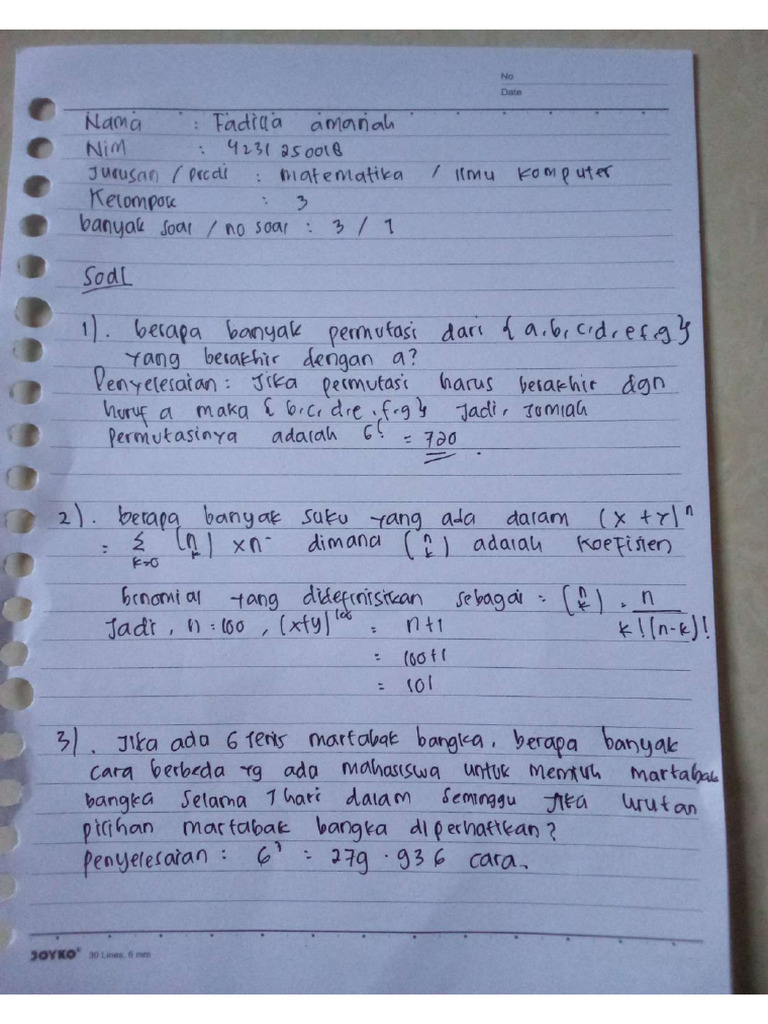 No
Date
Nama : Fadilla amanah
Nim : 4231250018
Jurusan / Prodi : matematika / Ilmu komputer
Kelompok : 3
banyak soal / no soal : 3 / 1
Soal
1). berapa banyak permutasi dari { a, b, c, d, e f, g }
yang berakhir dengan a?
Penyelesaian : Jika permutasi harus berakhir dgn
huruf a maka { b, c, d, e, f, g } Jadi, Jumlah
permutasinya adalah 6! = 720.
2). berapa banyak suku yang ada dalam (x + y)^n
= Σ k=0 (n k) x n- dimana (n k) adalah koefisien
binomial yang didefinisikan sebagai = (n k) = n / k! (n-k)!
Jadi, n = 100, (x+y)^100 = n+1
= 100+1
= 101
3). Jika ada 6 jenis martabak bangka, berapa banyak
cara berbeda yg ada mahasiswa untuk memilih martabak
bangka selama 7 hari dalam seminggu jika urutan
pilihan martabak bangka diperhatikan?
Penyelesaian : 6^7 = 279.936 cara.
JOYKO 30 Lines, 6 mm